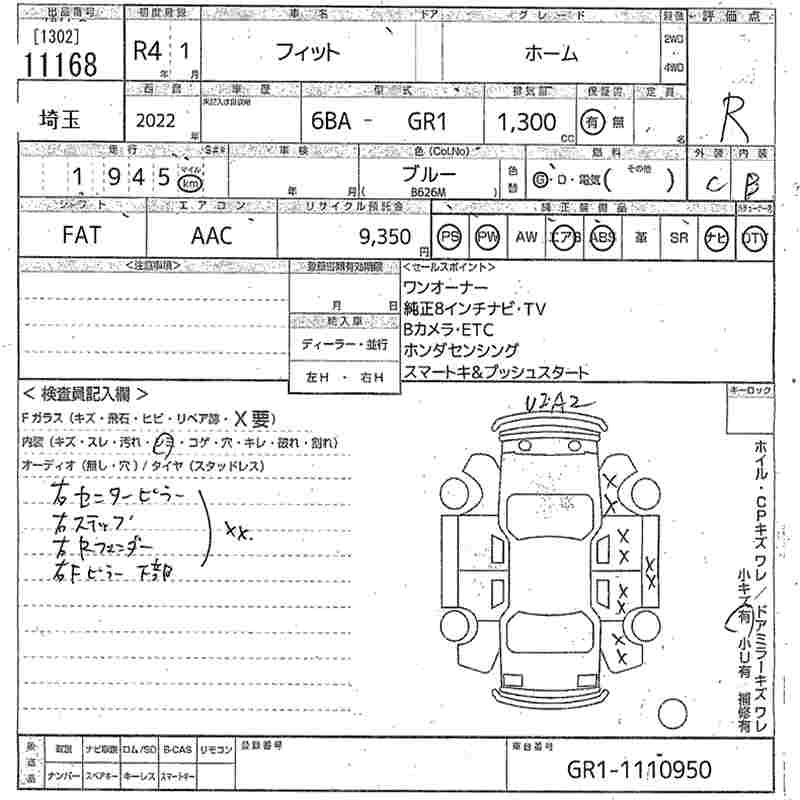 出品番号 初度登録 車名 ドア グレード 評価点
[1302]
11168 R4年 1月 フィット ホーム 2WD 4WD
R
西暦 車歴 型式 排気量 保証書 定員
埼玉 2022年 6BA - GR1 1,300cc 有 無 名
走行 車検 色(Col.No) 燃料 外装 内装
1 945 マイル km 年 月 ブルー (B626M) 色替 G・D・電気 (その他) C B
シフト エアコン リサイクル預託金 純正装備品
FAT AAC 9,350円 PS PW AW エアB ABS 革 SR ナビ DTV
<注意事項> <セールスポイント>
月 日
ワンオーナー
純正8インチナビ・TV
Bカメラ・ETC
ホンダセンシング
スマートキ&プッシュスタート
輸入車
ディーラー・並行
左H ・ 右H
<検査員記入欄> キーロック
Fガラス (キズ・飛石・ヒビ・リペア跡・X要)
内装 (キズ・スレ・汚れ・シミ・コゲ・穴・キレ・破れ・割れ)
オーディオ (無し・穴) / タイヤ (スタッドレス)
右センターピラー
右ステップ
右Rフェンダー
右Fピラー下部
XX.
U2A2
X X
X X
X X
X X
X X
ホイル・CPキズワレ/ドアミラーキズワレ
小キズ有 小U有 補修有
取説 ナビ取説 ロム/SD B-CAS リモコン 登録番号 車台番号
ナンバー スペアキー キーレス スマートキー
GR1-1110950